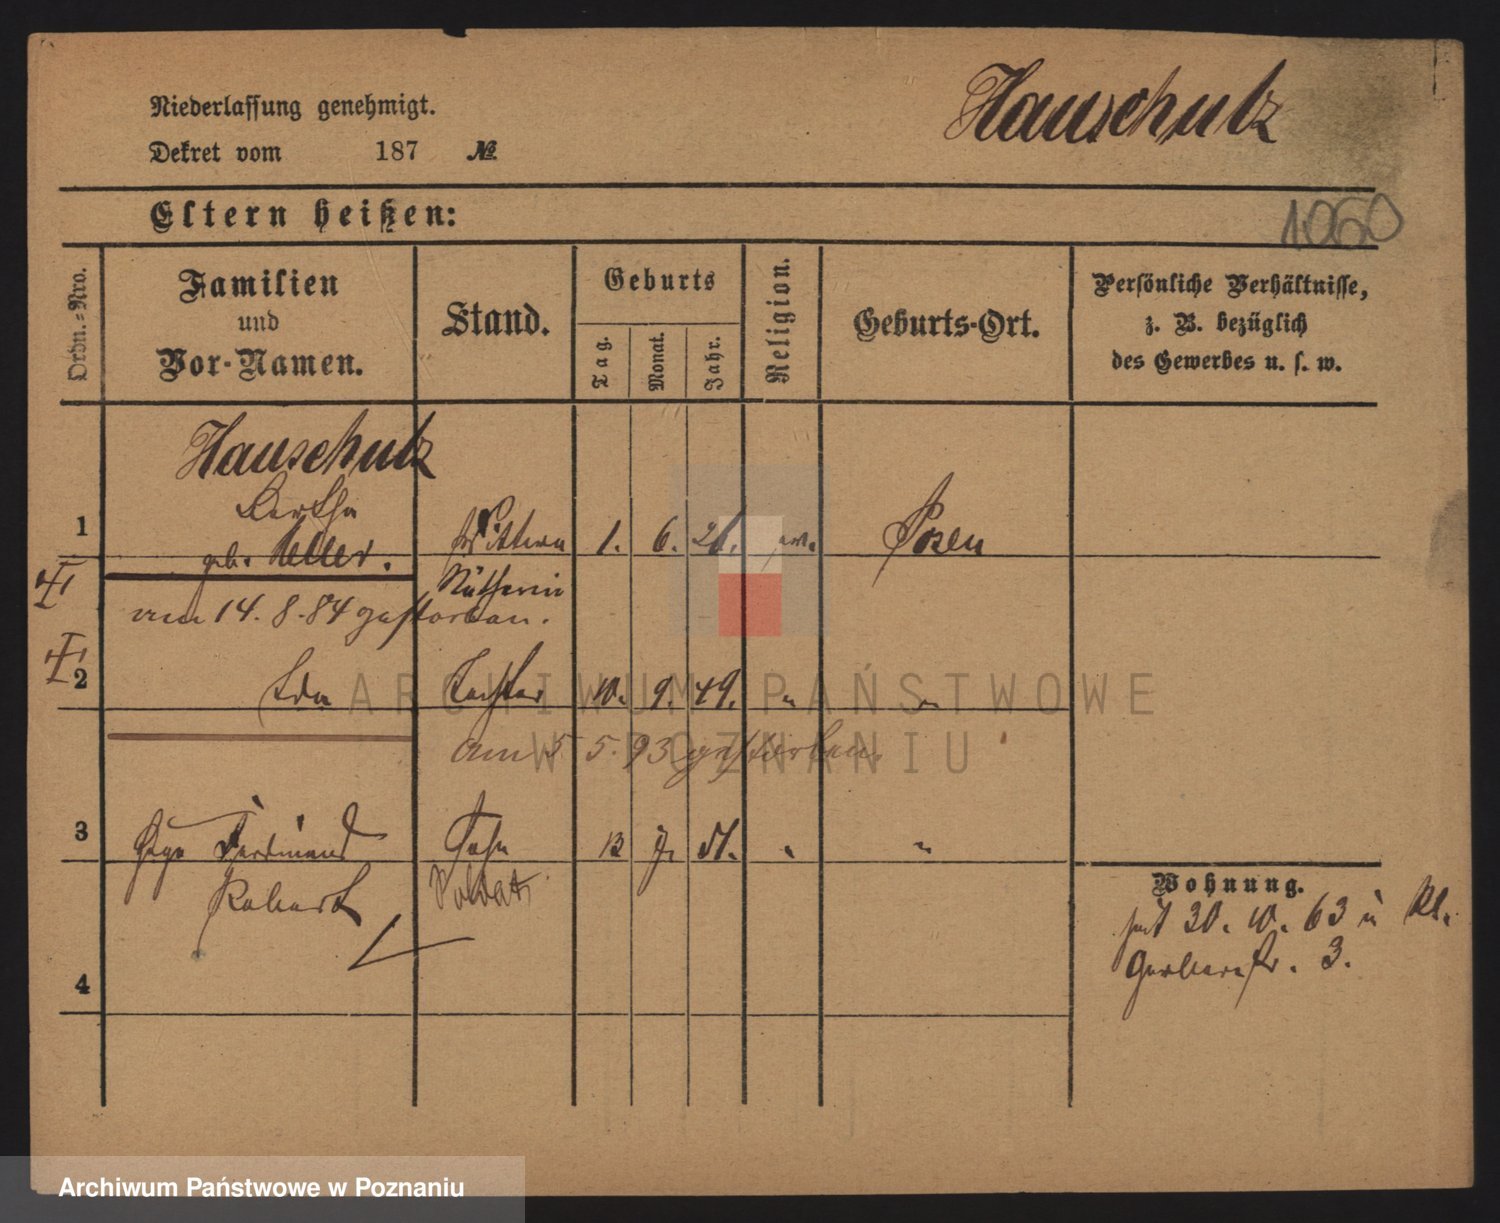 Niederlassung genehmigt.
Hauschulz
Dekret vom 187 №
Eltern heißen:
1060
Ordn.-Nro.
Familien
und
Vor-Namen.
Stand.
Geburts
Tag.
Monat.
Jahr.
Religion.
Geburts-Ort.
Persönliche Verhältnisse,
z. B. bezüglich
des Gewerbes u. s. w.
Hauschulz
Bertha
1 geb. Heller. Wittwe 1. 6. 21. Posen
Nätherin
am 14. 8. 84 gestorben.
2 Ida Tochter 10. 9. 49. " "
am 5 5. 93 gestorben.
3 Hugo Ferdinand Sohn 13 7. 51. " "
Robert Soldat
Wohnung.
seit 30. 10. 63 Kl.
Gerberstr. 3.
4
ARCHIWUM PAŃSTWOWE
W POZNANIU
Archiwum Państwowe w Poznaniu